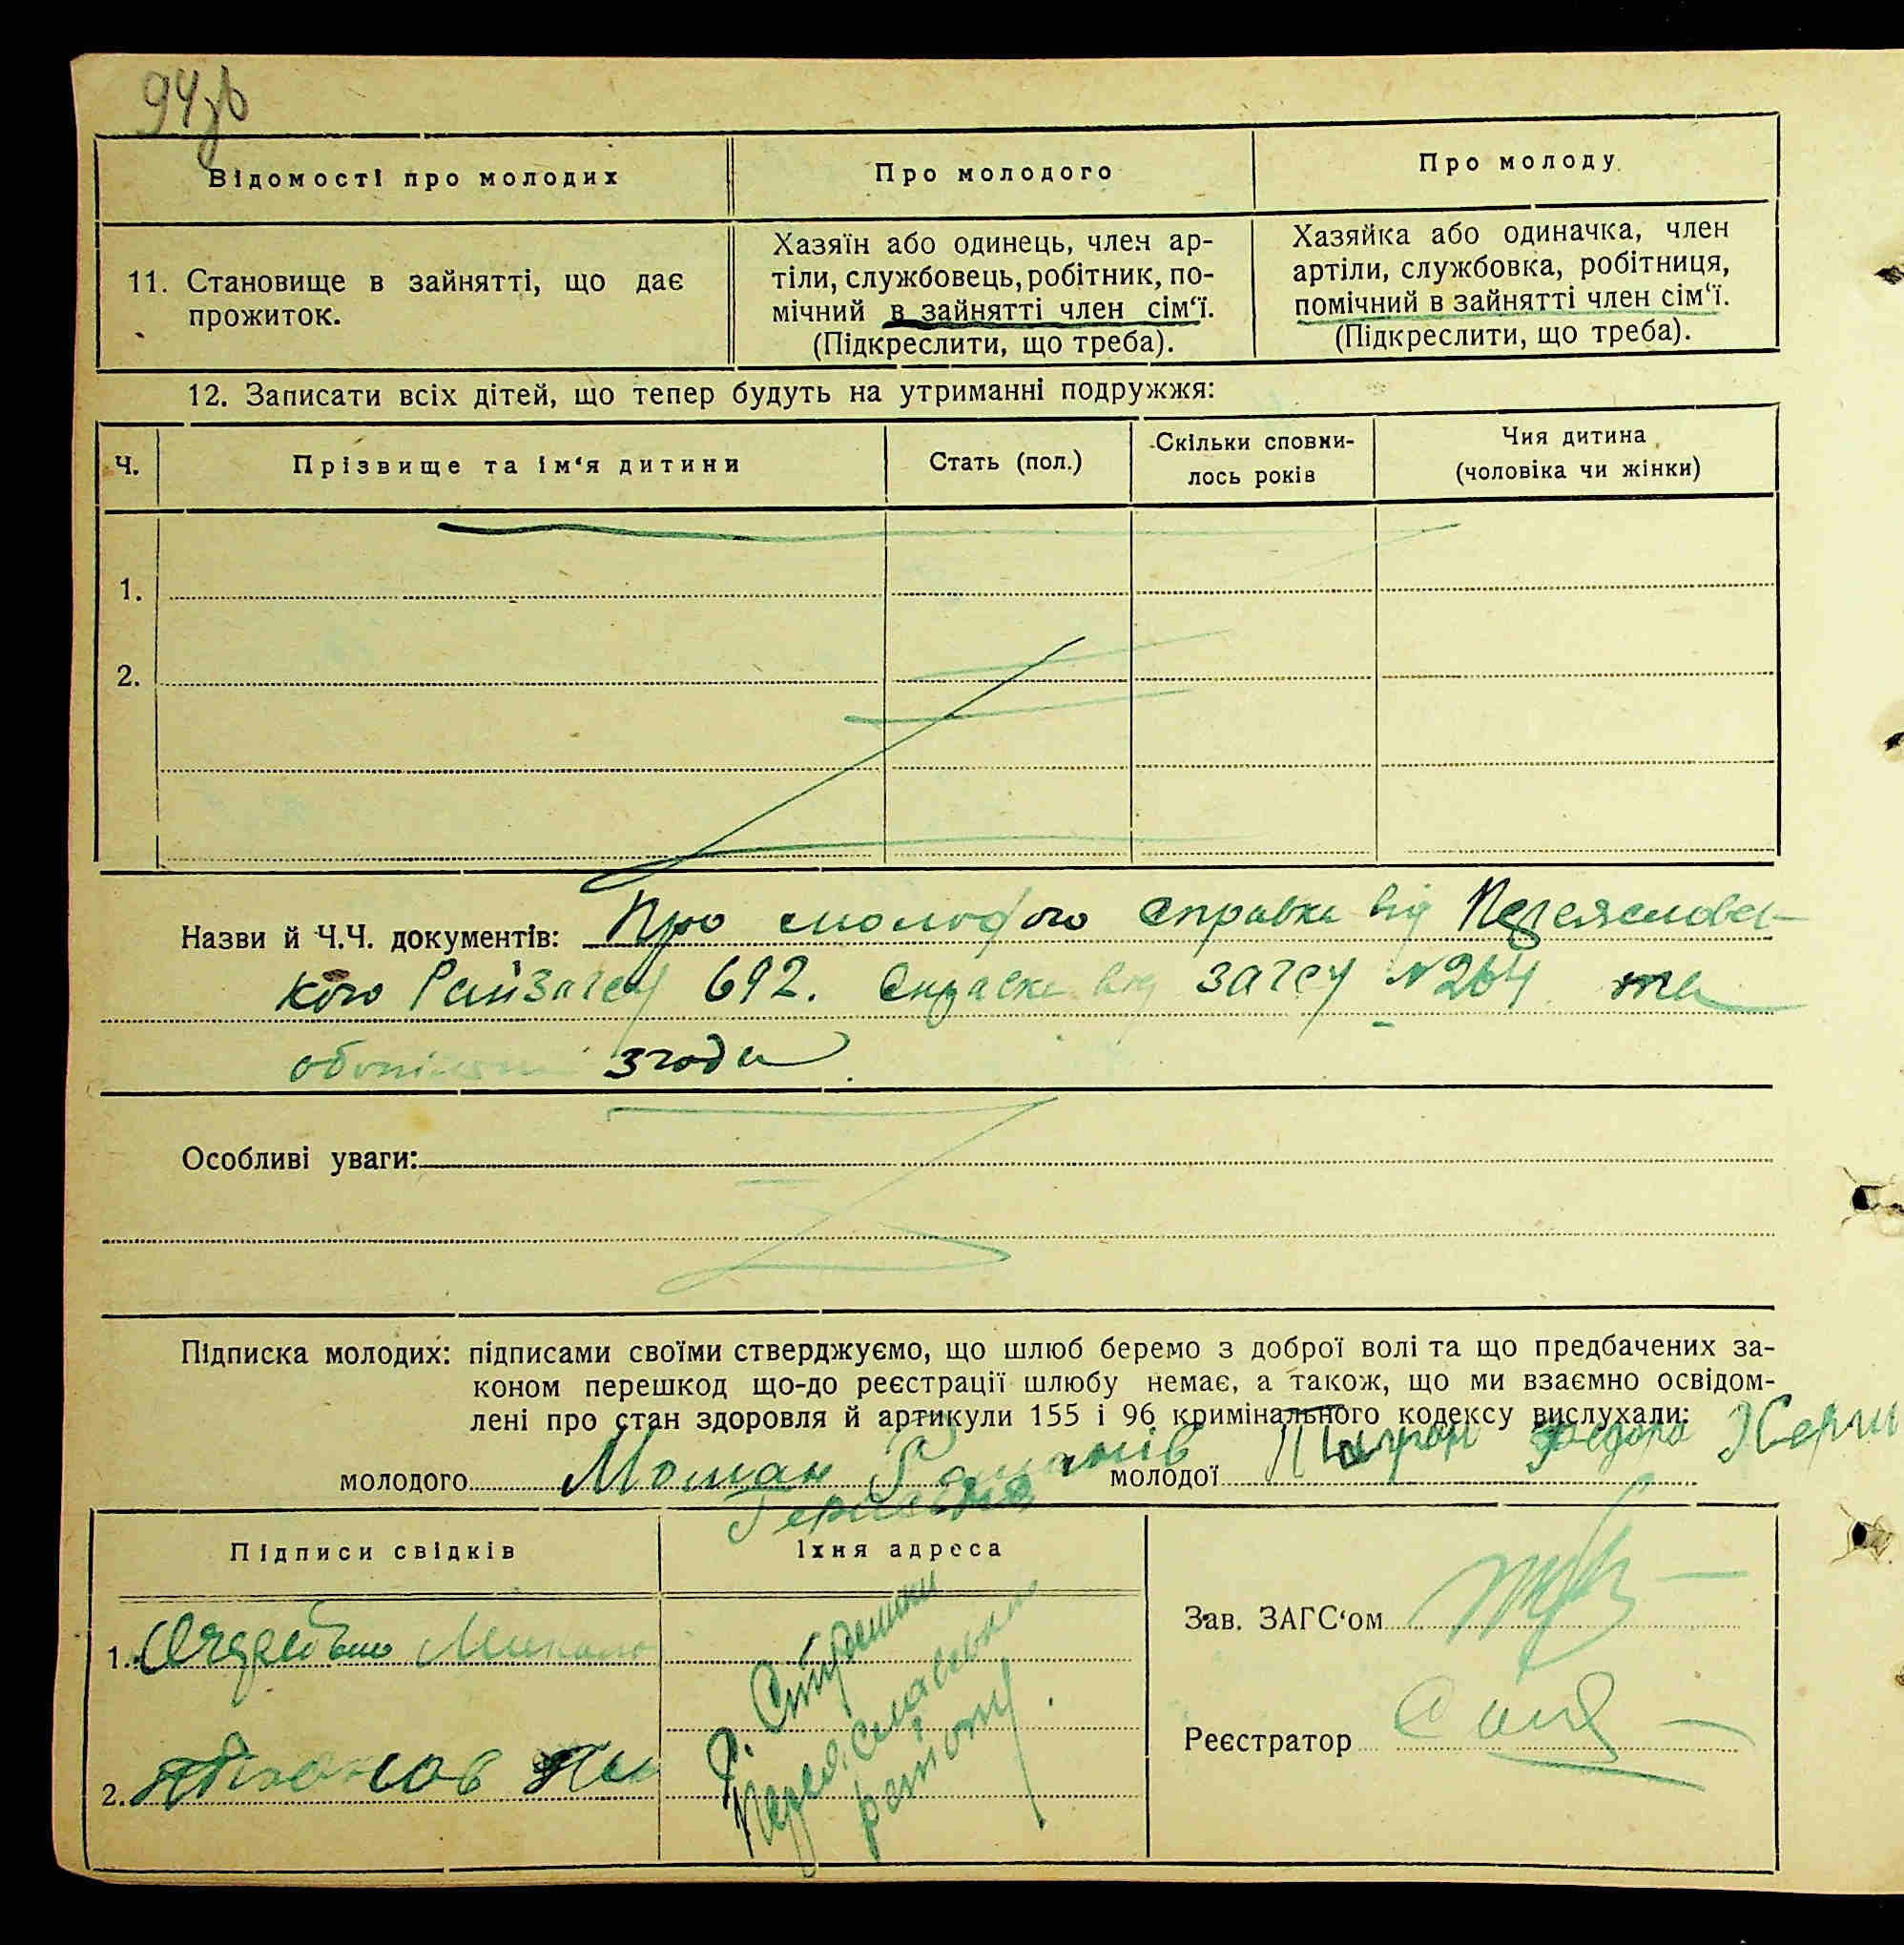 94зв
Відомості про молодих
Про молодого
Про молоду
11. Становище в зайнятті, що дає
прожиток.
Хазяїн або одинець, член ар-
тіли, службовець, робітник, по-
мічний в зайнятті член сім‘ї.
(Підкреслити, що треба).
Хазяйка або одиначка, член
артіли, службовка, робітниця,
помічний в зайнятті член сім‘ї.
(Підкреслити, що треба).
12. Записати всіх дітей, що тепер будуть на утриманні подружжя:
Ч.
Прізвище та ім‘я дитини
Стать (пол.)
Скільки сповни-
лось років
Чия дитина
(чоловіка чи жінки)
1.
2.
Назви й Ч.Ч. документів: Про молодого справка від Переяславсь-
кого Райзагсу 692. Справка від загсу № 264 та
обопільні згоди
Особливі уваги:
Підписка молодих: підписами своїми стверджуємо, що шлюб беремо з доброї волі та що предбачених за-
коном перешкод що-до реєстрації шлюбу немає, а також, що ми взаємно освідом-
лені про стан здоровля й артикули 155 і 96 кримінального кодексу вислухали:
молодого
молодої
Підписи свідків
Їхня адреса
1.
2.
С. Студеники
Переяславського
району
Зав. ЗАГС‘ом
Реєстратор